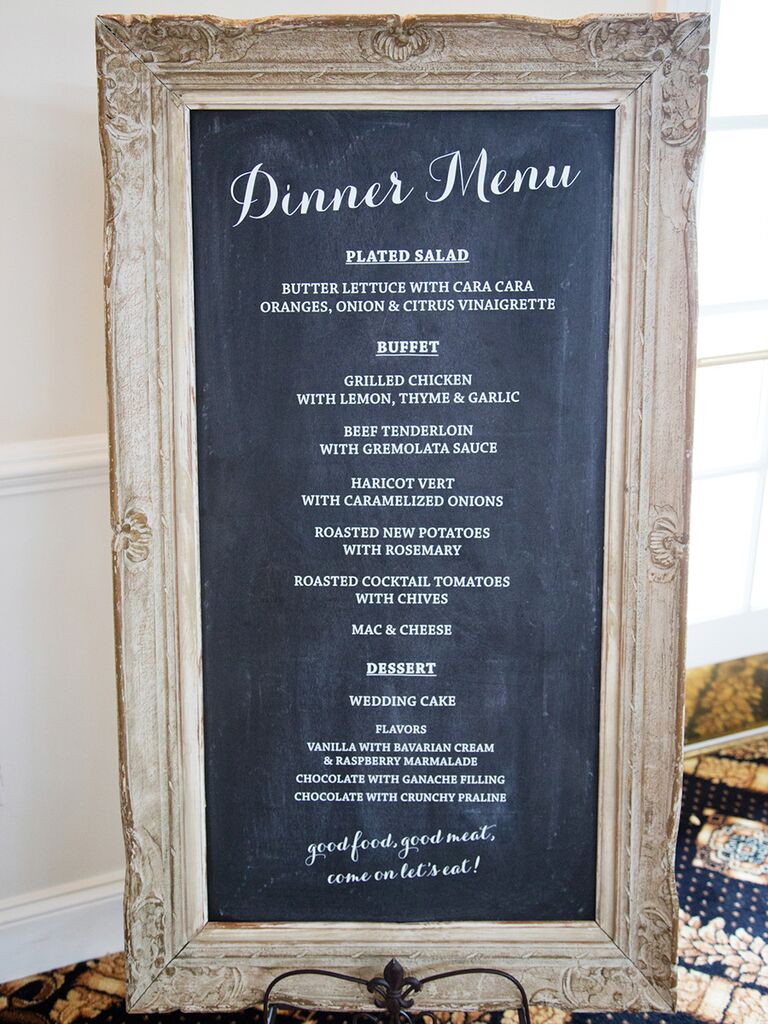 Dinner Menu
PLATED SALAD
BUTTER LETTUCE WITH CARA CARA
ORANGES, ONION & CITRUS VINAIGRETTE
BUFFET
GRILLED CHICKEN
WITH LEMON, THYME & GARLIC
BEEF TENDERLOIN
WITH GREMOLATA SAUCE
HARICOT VERT
WITH CARAMELIZED ONIONS
ROASTED NEW POTATOES
WITH ROSEMARY
ROASTED COCKTAIL TOMATOES
WITH CHIVES
MAC & CHEESE
DESSERT
WEDDING CAKE
FLAVORS
VANILLA WITH BAVARIAN CREAM
& RASPBERRY MARMALADE
CHOCOLATE WITH GANACHE FILLING
CHOCOLATE WITH CRUNCHY PRALINE
good food, good meat,
come on let's eat!